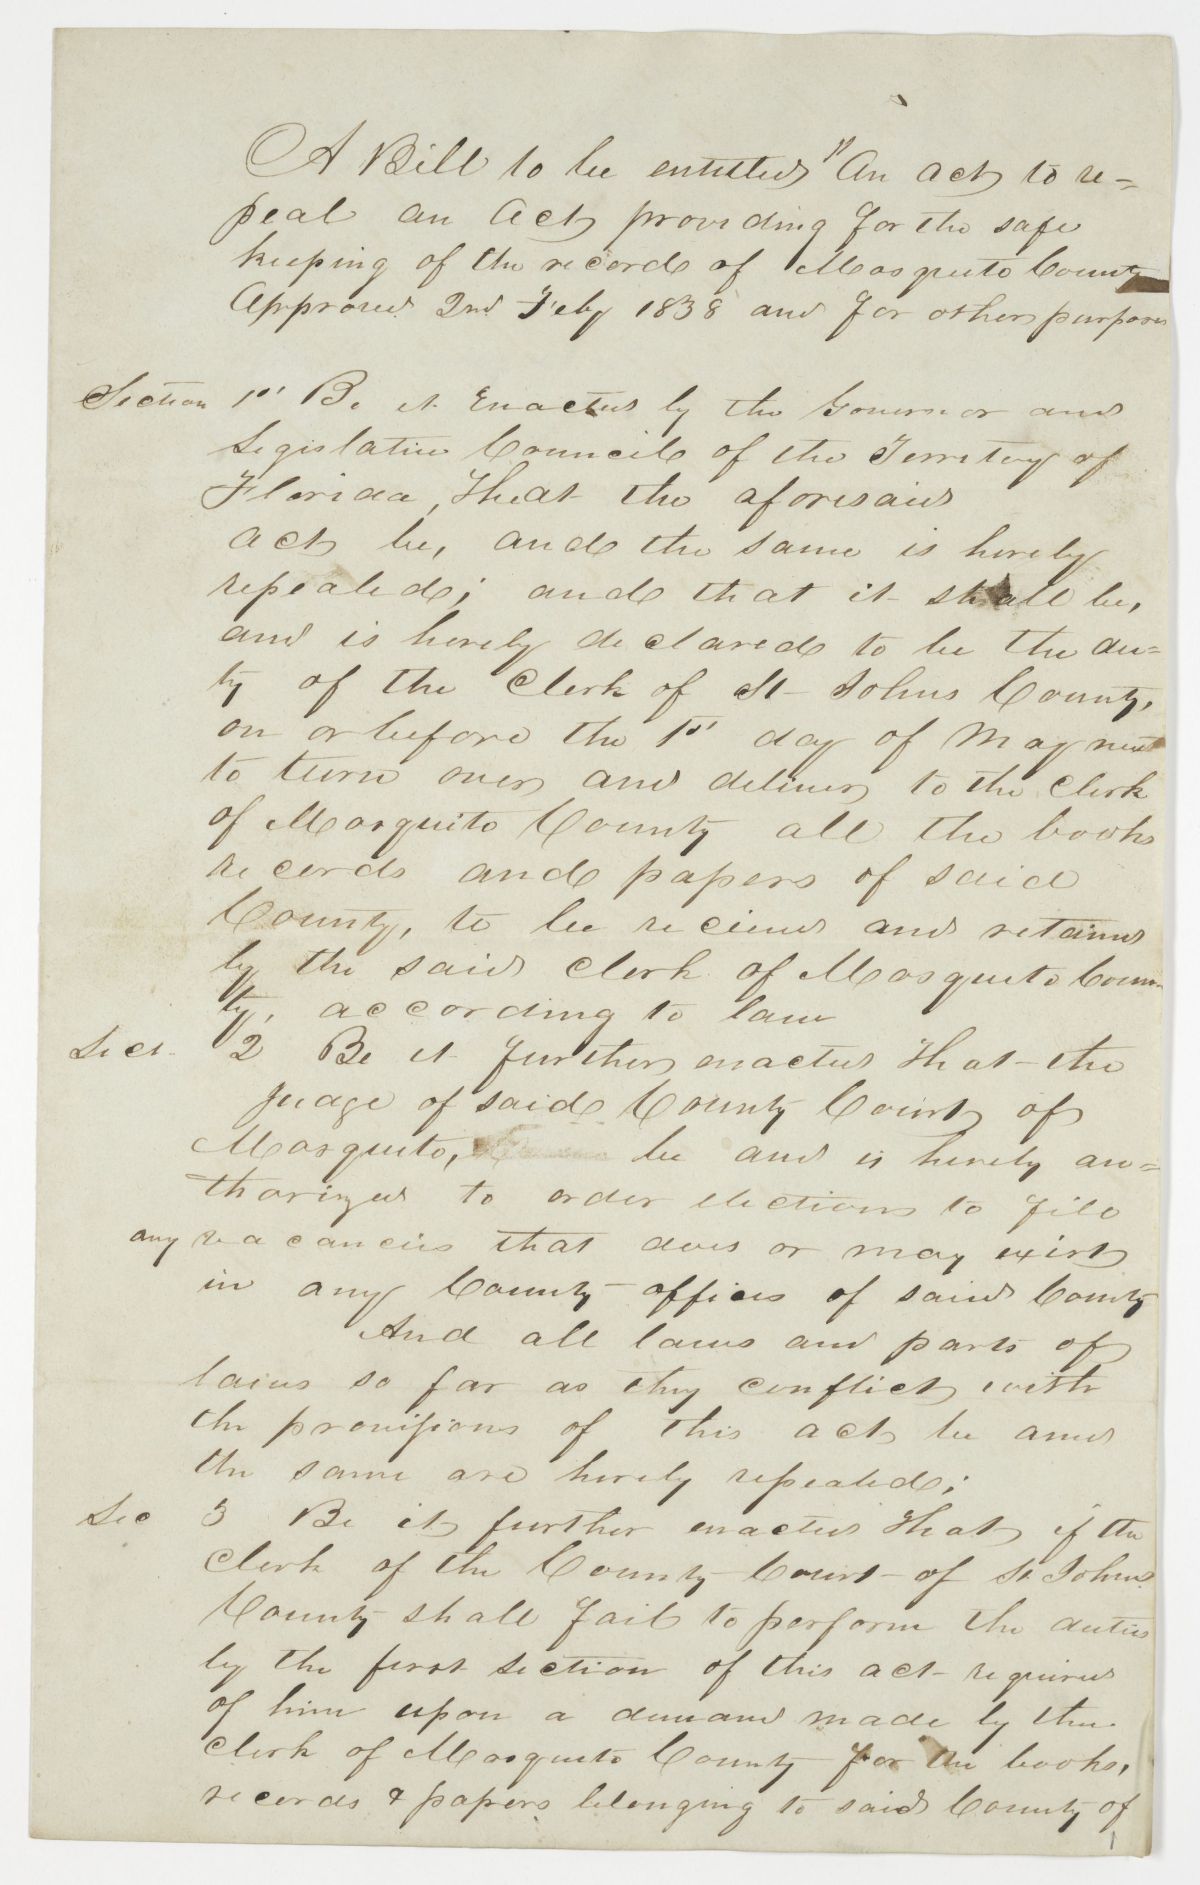 A Bill to be entitled "An act to re=
peal an Act providing for the safe
keeping of the records of Mosquito County
Approved 2nd Feby 1838 and for other purposes
Section 1st Be it Enacted by the Governor and
Legislative Council of the Territory of
Florida, That the aforesaid
act be, and the same is hereby
repealed; and that it shall be,
and is hereby declared to be the du=
ty of the Clerk of St Johns County,
on or before the 1st day of May next
to turn over and deliver to the Clerk
of Mosquito County all the books
records and papers of said
County, to be recieved and retained
by the said Clerk of Mosquito Coun
ty, according to law
Sect. 2 Be it further enacted That the
Judge of said County Court of
Mosquito, be and is hereby au=
thorized to order elections to fill
any vacancies that does or may exist
in any County offices of said County
And all laws and parts of
laws so far as they conflict with
the provisions of this act be and
the same are hereby repealed;
Sec 3 Be it further enacted That if the
Clerk of the County Court of St Johns
County shall fail to perform the duties
by the first section of this act required
of him upon a demand made by the
Clerk of Mosquito County for the books,
records & papers belonging to said County of
1